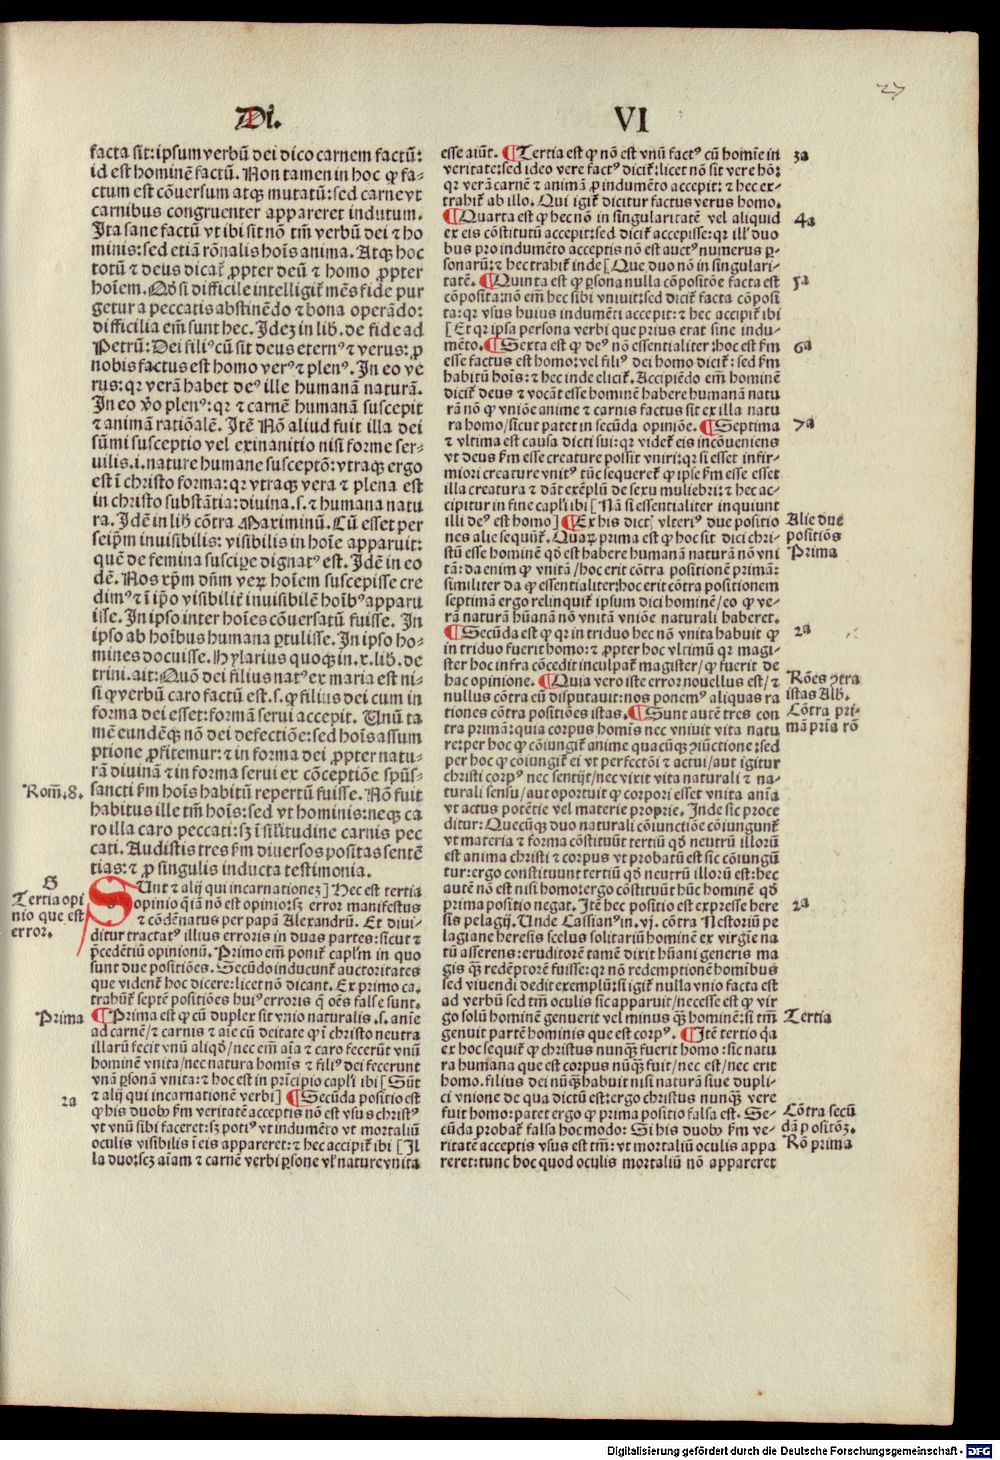 27
Di.
VI
facta sit: ipsum verbū dei dico carnem factū:
id est hominē factū. Non tamen in hoc ꝙ fa-
ctum est cōuersum atqꝫ mutatū: sed carne vt
carnibus congruenter appareret indutum.
Ita sane factū vt ibi sit nō tm̄ verbū dei ⁊ ho
minis: sed etiā rōnalis hoīs anima. Atqꝫ hoc
totū ⁊ deus dicat̄ ꝓpter deū ⁊ homo ꝓpter
hoīem. Qd̄ si difficile intelligit̄ mēs fide pur
getur a peccatis abstinēdo ⁊ bona operādo:
difficilia em̄ sunt hec. Ideꝫ in lib̄. de fide ad
Petrū: Dei filiꝰ cū sit deus eternꝰ ⁊ verus: ꝓ
nobis factus est homo verꝰ ⁊ plenꝰ. In eo ve
rus: qꝛ verā habet deꝰ ille humanā naturā.
In eo v̄o plenꝰ: qꝛ ⁊ carnē humanā suscepit
⁊ animā ratiōalē. Itē Nō aliud fuit illa dei
sūmi susceptio vel exinanitio nisi forme ser-
uilis .i. nature humane susceptō: vtraqꝫ ergo
est ī christo forma: qꝛ vtraqꝫ vera ⁊ plena est
in christo substātia: diuina .s. ⁊ humana natu
ra. Idē in lib̄ cōtra Maximinū. Cū esset per
seip̄m inuisibilis: visibilis in hoīe apparuit:
quē de femina suscipe dignatꝰ est. Idē in eo
dē. Nos xp̄m dn̄m veꝝ hoīem suscepisse cre
dimꝰ ⁊ ī ip̄o visibilit̄ inuisibilē hoībꝰ apparu
isse. In ipso inter hoīes cōuersatū fuisse. In
ipso ab hoībus humana ꝑtulisse. In ipso ho-
mines docuisse. Hylarius quoqꝫ in .x. lib̄. de
trini. ait: Quō dei filius natꝰ ex maria est ni-
si ꝙ verbū caro factū est .s. ꝙ filius dei cum in
forma dei esset: formā serui accepit. Unū ta
mē eundēqꝫ nō dei defectiōe: sed hoīs assum
ptione ꝓfitemur: ⁊ in forma dei ꝓpter natu-
rā diuinā ⁊ in forma serui ex cōceptiōe spūs-
sancti fm̄ hoīs habitū repertū fuisse. Nō fuit
habitus ille tm̄ hoīs: sed vt hominis: neqꝫ ca
ro illa caro peccati: sꝫ ī sil̄itudine carnis pec
cati. Audistis tres fm̄ diuersos positas sentē
tias: ⁊ ꝓ singulis inducta testimonia.
Rom̄. 8.
Tertia opi
nio que est
error.
SUnt ⁊ alij qui incarnationeꝫ] Hec est tertia
opinio q̄ iā nō est opinio: sꝫ error manifestus
⁊ cōdēnatus per papā Alexandrū. Et diui-
ditur tractatꝰ illius erroris in duas partes: sicut ⁊
p̄cedētiū opinionū. Primo em̄ ponit̄ capl̄m in quo
sunt due positiōes. Secūdo inducunt̄ auctoritates
que vident̄ hoc dicere: licet nō dicant. Ex primo ca.
trahūt̄ septē positiōes huiꝰ erroris q̄ oēs false sunt.
Prima
¶Prima est ꝙ cū duplex sit vnio naturalis .s. anīe
ad carnē/ ⁊ carnis ⁊ aīe cū deitate ꝙ ī christo neutra
illarū fecit vnū aliqd̄/ nec em̄ aīa ⁊ caro fecerūt vnū
hominē vnita/ nec natura homīs ⁊ filiꝰ dei fecerunt
vnā ꝑsonā vnita: ⁊ hoc est in prīcipio capl̄i ibi [Sūt
2a
⁊ alij qui incarnationē verbi] ¶Secūda positio est
ꝙ his duobꝰ fm̄ veritatē acceptis nō est vsus christꝰ
vt vnū sibi faceret: sꝫ potiꝰ vt indumēto vt mortaliū
oculis visibilis ī eis appareret: ⁊ hec accipit̄ ibi [Il
la duo: scꝫ aīam ⁊ carnē verbi ꝑsone vl̄ nature vnita
esse aiūt. ¶Tertia est ꝙ nō est vnū factꝰ cū homīe in
veritate: sed ideo vere factꝰ dicit̄: licet nō sit vere hō:
qꝛ verā carnē ⁊ animā ꝓ indumēto accepit: ⁊ hec ex-
trahit̄ ab illo. Qui igit̄ dicitur factus verus homo.
¶Quarta est ꝙ hec nō in singularitatē vel aliquid
ex eis cōstitutū accepit: sed dicit̄ accepisse: qꝛ ill' duo
bus pro indumēto acceptis nō est auctꝰ numerus ꝑ-
sonarū: ⁊ hec trahit̄ inde [Que duo nō in singulari-
tatē. ¶Quinta est ꝙ ꝑsona nulla cōpositōe facta est
cōposita: nō em̄ hec sibi vniuit: sed dicit̄ facta cōposi
ta: qꝛ vsus huius indumēti accepit: ⁊ hec accipit̄ ibi
[Et qꝛ ipsa persona verbi que prius erat sine indu-
mēto. ¶Sexta est ꝙ deꝰ nō essentialiter: hoc est fm̄
esse factus est homo: vel filiꝰ dei homo dicit̄: sed fm̄
habitū hoīs: ⁊ hec inde elicit̄. Accipiēdo em̄ hominē
dicit̄ deus ⁊ vocāt esse hominē habere humanā natu
rā nō ꝙ vniōe anime ⁊ carnis factus sit ex illa natu
ra homo/ sicut patet in secūda opiniōe. ¶Septima
⁊ vltima est causa dicti sui: qꝛ videt̄ eis incōueniens
vt deus fm̄ esse creature possit vniri: qꝛ si esset infir-
miori creature vnitꝰ tūc sequeret̄ ꝙ ipse fm̄ esse esset
illa creatura ⁊ dāt exēplū de sexu muliebri: ⁊ hec ac-
cipitur in fine capl̄i ibi [Nā si essentialiter inquiunt
illi deꝰ est homo] ¶Ex his dictꝭ vlteriꝰ due positio
nes alie sequūt̄. Quaꝝ prima est ꝙ hoc sit dici chri-
stū esse hominē qd̄ est habere humanā naturā nō vni
tā: da enim ꝙ vnitā/ hoc erit cōtra positionē primā:
similiter da ꝙ essentialiter: hoc erit cōtra positionem
septimā ergo relinquit̄ ipsum dici hominē/ eo ꝙ ve-
rā naturā hūanā nō vnitā vniōe naturali haberet.
¶Secūda est ꝙ qꝛ in triduo hec nō vnita habuit ꝙ
in triduo fuerit homo: ⁊ ꝓpter hoc vltimū qꝛ magi-
ster hoc infra cōcedit inculpat̄ magister/ ꝙ fuerit de
hac opinione. ¶Quia vero iste error nouellus est/ ⁊
nullus cōtra eū disputauit: nos ponemꝰ aliquas ra
tiones cōtra positiōes istas. ¶Sunt autē tres con
tra primā: quia corpus homīs nec vniuit vita natu
re: per hoc ꝙ cōiungit̄ anime quacūqꝫ ꝯiūctione: sed
per hoc ꝙ cōiungit̄ ei vt perfectōi ⁊ actui/ aut igitur
christi corpꝰ nec sentijt/ nec vixit vita naturali ⁊ na-
turali sensu/ aut oportuit ꝙ corpori esset vnita anīa
vt actus potētie vel materie proprie. Inde sic proce
ditur: Quecūqꝫ duo naturali cōiunctiōe cōiungunt̄
vt materia ⁊ forma cōstituūt tertiū qd̄ neutrū illorū
est anima christi ⁊ corpus vt probatū est sic cōiungū
tur: ergo constituunt tertiū qd̄ neutrū illorū est: hec
autē nō est nisi homo: ergo cōstituūt hūc hominē qd̄
prima positio negat. Itē hec positio est expresse here
sis pelagij. Unde Cassianꝰ in .vj. cōtra Nestoriū pe
lagiane heresis scelus solitariū hominē ex virgīe na
tū asserens: eruditorē tamē dixit hūani generis ma
gis qꝫ̄ redēptorē fuisse: qꝛ nō redemptionē homībus
sed viuendi dedit exemplū: si igit̄ nulla vnio facta est
ad verbū sed tm̄ oculis sic apparuit/ necesse est ꝙ vir
go solū hominē genuerit vel minus qꝫ̄ hominē: si tm̄
genuit partē hominis que est corpꝰ. ¶Itē tertio q̄a
ex hoc sequit̄ ꝙ christus nunqꝫ̄ fuerit homo: sic natu
ra humana que est corpus nūqꝫ̄ fuit/ nec est/ nec erit
homo. filius dei nūqꝫ̄ habuit nisi naturā siue dupli-
ci vnione de qua dictū est: ergo christus nunqꝫ̄ vere
fuit homo: patet ergo ꝙ prima positio falsa est. Se-
cūda probat̄ falsa hoc modo: Si his duobꝰ fm̄ ve-
ritatē acceptis vsus est tm̄: vt mortaliū oculis appa
reret: tunc hoc quod oculis mortaliū nō appareret
3a
4a
5a
6a
7a
Alie due
positiōs
Prima
2a
Rōes ꝯtra
istas Alb̄.
Cōtra pri-
mā pria rō
2a
Tertia
Cōtra secū
dā positōꝫ.
Rō prima
Digitalisierung gefördert durch die Deutsche Forschungsgemeinschaft - DFG